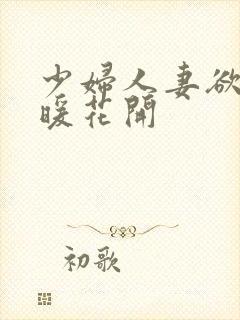 少婦人妻欲
暖花開
初歌